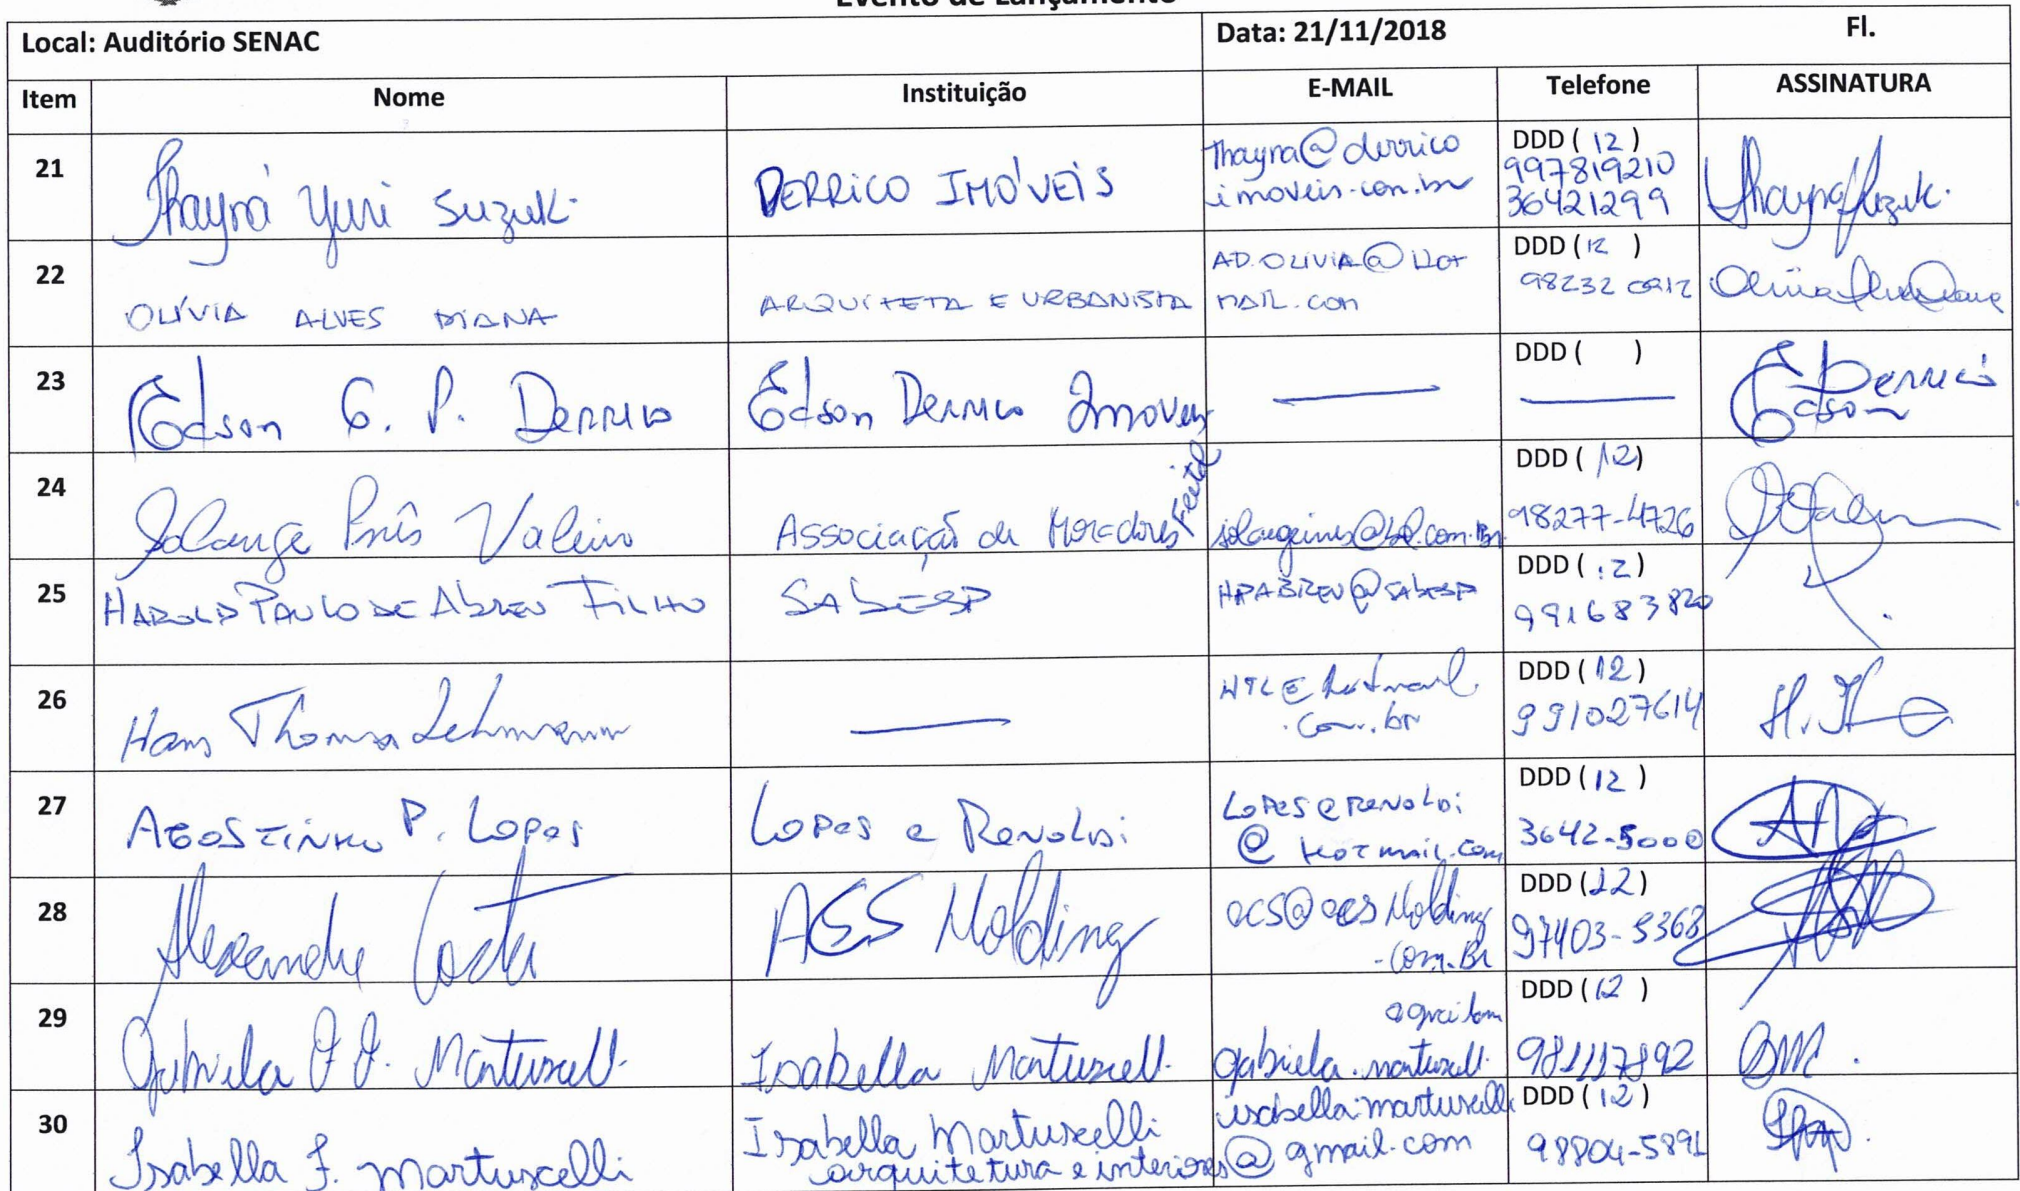 Evento de Lançamento
Local: Auditório SENAC Data: 21/11/2018 Fl.
Item Nome Instituição E-MAIL Telefone ASSINATURA
21 Thayná Yuri Suzuki DERRICO IMÓVEIS thayna@derrico
imoveis.com.br DDD (12)
997819210
36421299
22 OLÍVIA ALVES DIANA ARQUITETA E URBANISTA AD.OLIVIA@HOT
MAIL.COM DDD (12)
98232
23 Edson G. P. Derrico Edson Derrico Imoveis — DDD ( )
—
24 Solange Inês Valerio Associação de Moradores Feital DDD (12)
98277-4726
25 HAROLD PAULO DE ABREU FILHO SABESP HPABREU@SABESP DDD (12)
991683820
26 Hans Thomas Lehmann — HTL@hotmail
.com.br DDD (12)
991027614
27 AGOSTINHO P. LOPES LOPES e RENOLDI LOPESERENOLDI
@HOTMAIL.COM DDD (12)
3642-5000
28 Alexandre Costa ACS Holding acs@acsHolding
.com.Br DDD (12)
97403-5368
29 Gabriela F. F. Martuscelli Isabella Martuscelli gabriela.martuscelli DDD (12)
981117892
30 Isabella F. Martuscelli Isabella Martuscelli
arquitetura e interiores isabella.martuscelli
@gmail.com DDD (12)
98804-5891